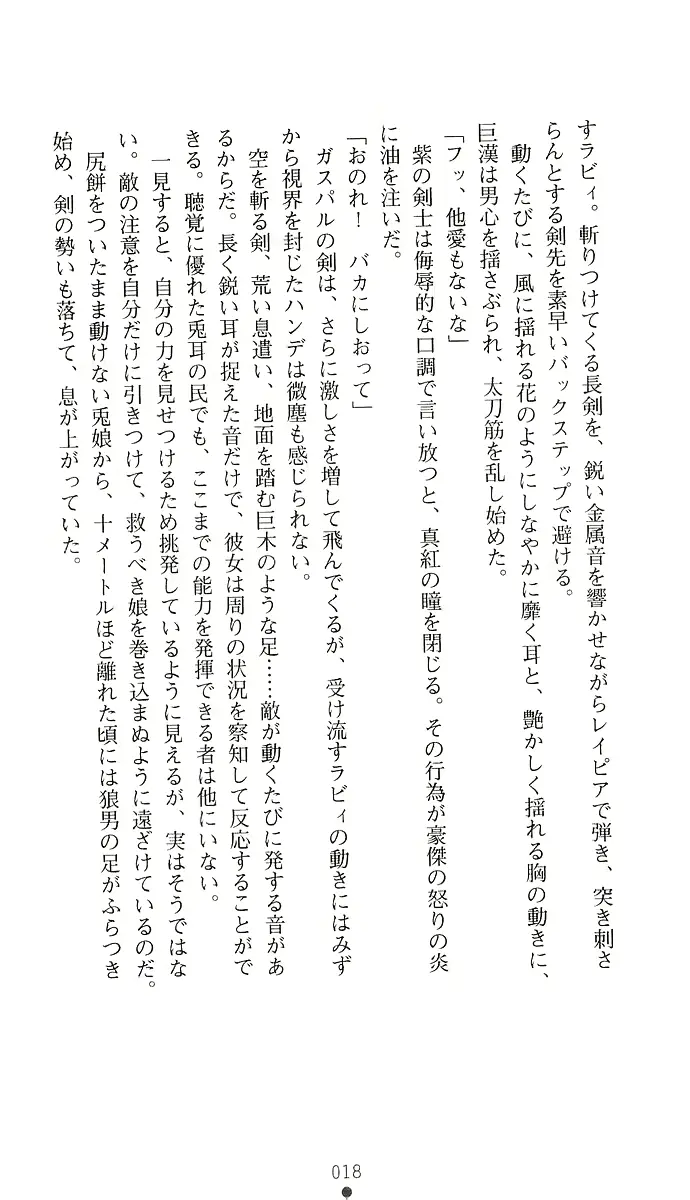 すラビィ。斬りつけてくる長剣を、鋭い金属音を響かせながらレイピアで弾き、突き刺さ
らんとする剣先を素早いバックステップで避ける。
　動くたびに、風に揺れる花のようにしなやかに靡く耳と、艶かしく揺れる胸の動きに、
巨漢は男心を揺さぶられ、太刀筋を乱し始めた。
「フッ、他愛もないな」
　紫の剣士は侮辱的な口調で言い放つと、真紅の瞳を閉じる。その行為が豪傑の怒りの炎
に油を注いだ。
「おのれ！　バカにしおって」
　ガスパルの剣は、さらに激しさを増して飛んでくるが、受け流すラビィの動きにはみず
から視界を封じたハンデは微塵も感じられない。
　空を斬る剣、荒い息遣い、地面を踏む巨木のような足……敵が動くたびに発する音があ
るからだ。長く鋭い耳が捉えた音だけで、彼女は周りの状況を察知して反応することがで
きる。聴覚に優れた兎耳の民でも、ここまでの能力を発揮できる者は他にいない。
　一見すると、自分の力を見せつけるため挑発しているように見えるが、実はそうではな
い。敵の注意を自分だけに引きつけて、救うべき娘を巻き込まぬように遠ざけているのだ。
　尻餅をついたまま動けない兎娘から、十メートルほど離れた頃には狼男の足がふらつき
始め、剣の勢いも落ちて、息が上がっていた。
018